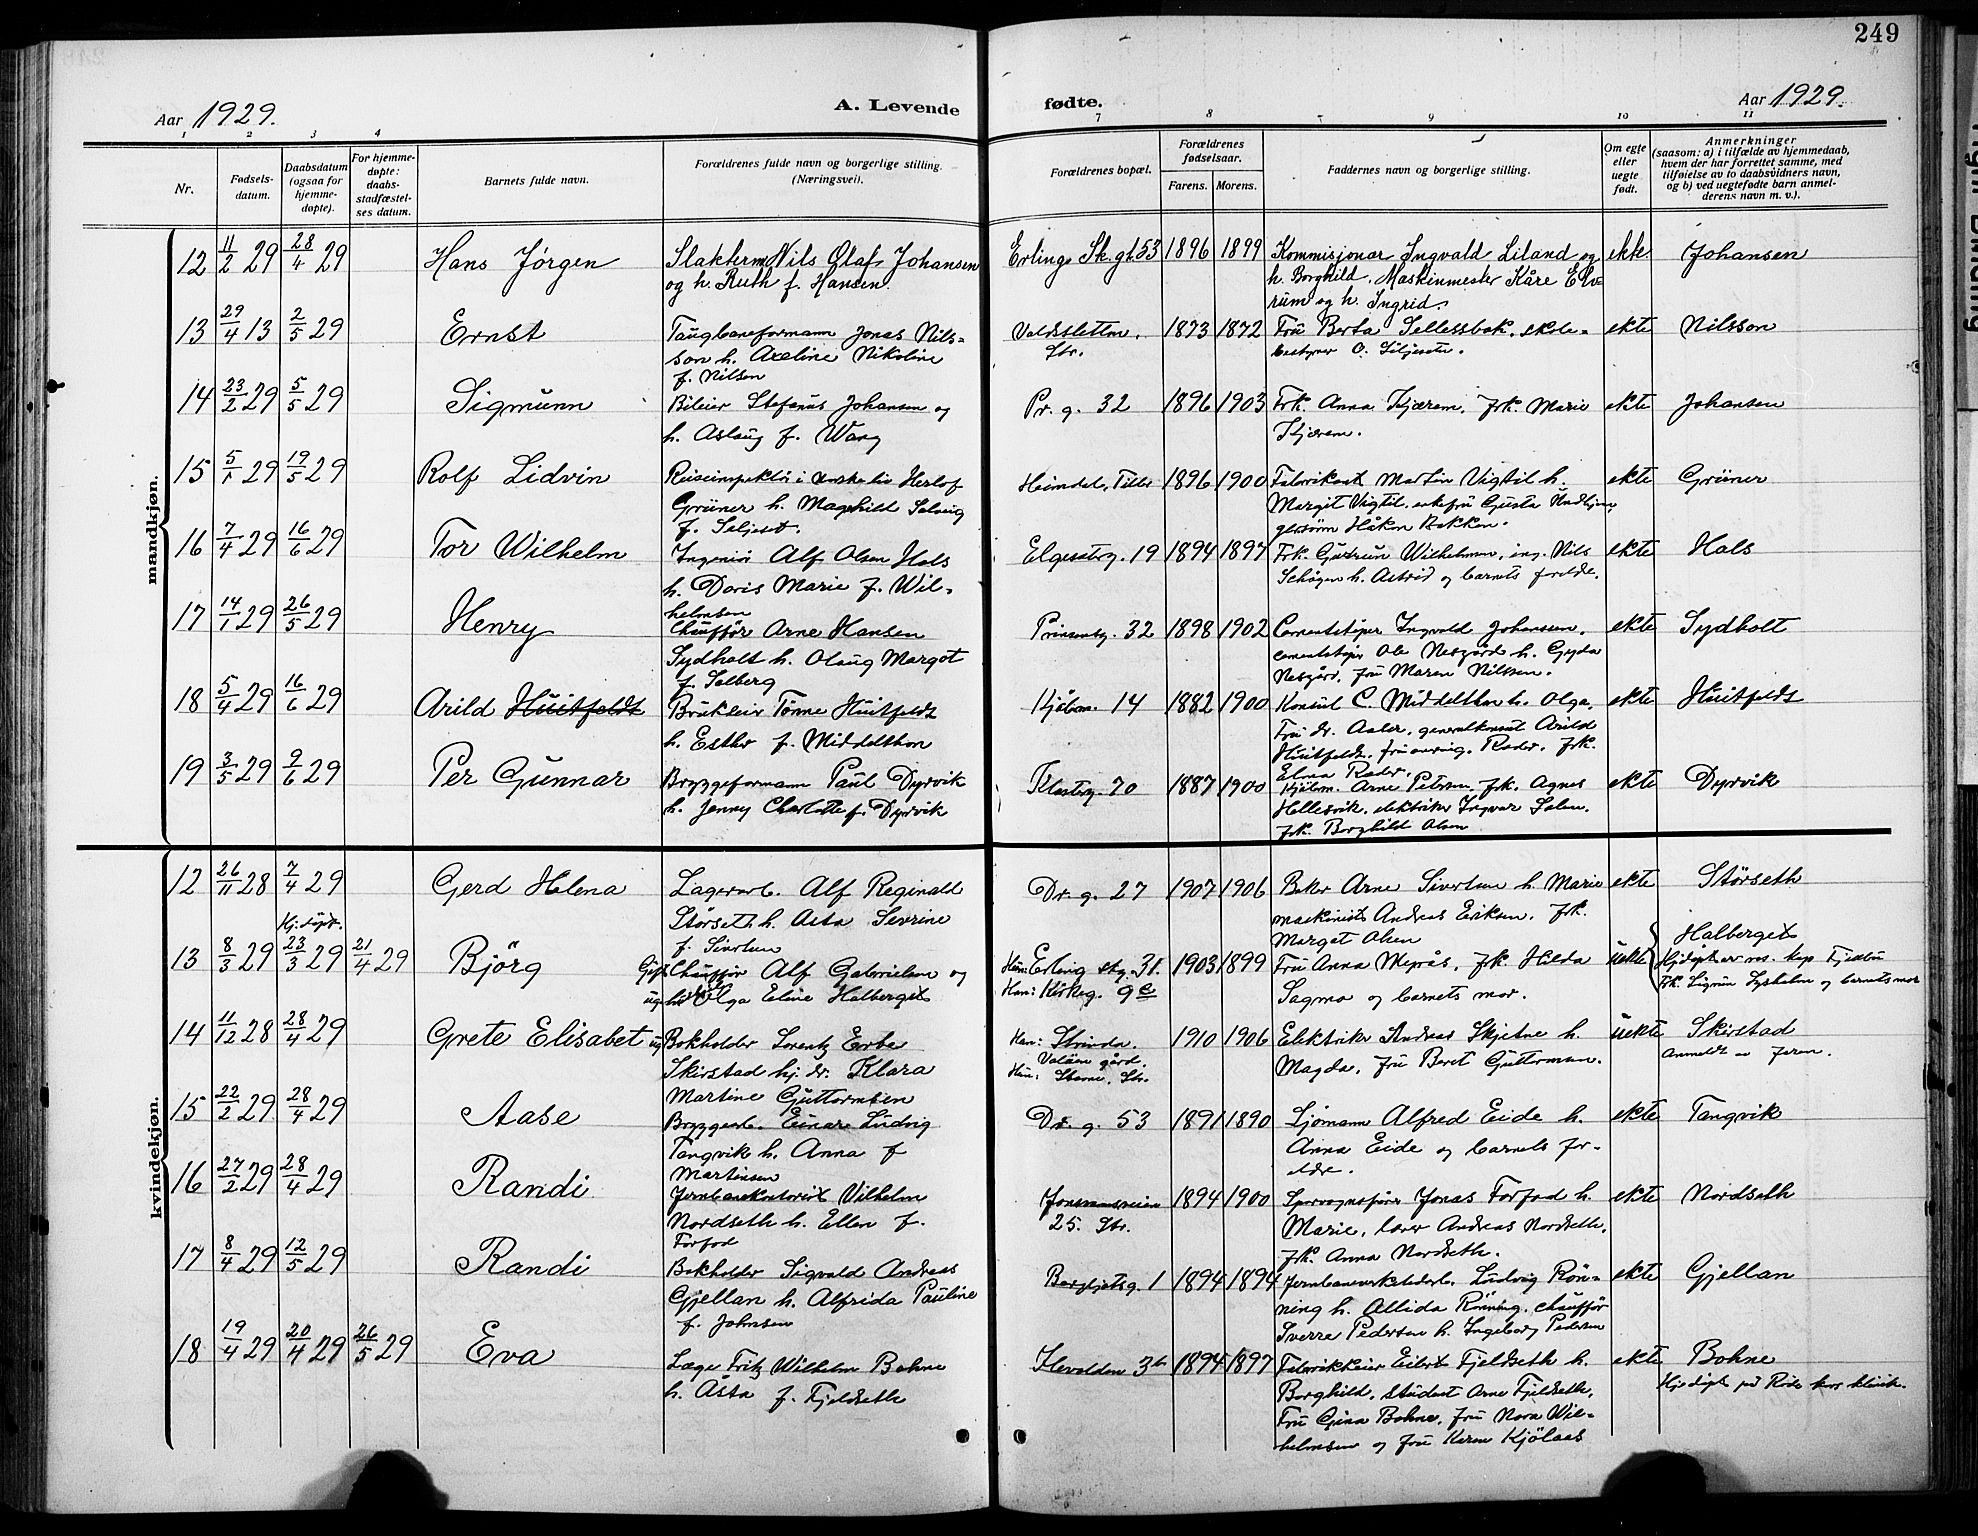 249
Aar 1929.
A. Levende
fødte.
Aar 1929.
1 2 3 4 7 8 9 10 11
Nr.
Fødsels-
datum.
Daabsdatum
(ogsaa for
hjemme-
døpte).
For hjemme-
døpte:
daabs-
stadfæstel-
ses datum.
Barnets fulde navn.
Forældrenes fulde navn og borgerlige stilling.
(Næringsvei).
Forældrenes bopæl.
Forældrenes
fødselsaar.
Farens. Morens.
Faddernes navn og borgerlige stilling.
Om egte
eller
uegte
født.
Anmerkninger
(saasom: a) i tilfælde av hjemmedaab,
hvem der har forrettet samme, med
tilføielse av to daabsvidners navn,
og b) ved uegtefødte barn anmel-
derens navn m. v.).
mandkjøn.
12 11/2 29 28/4 29 Hans Jørgen Slakterm Nils Olaf Johansen Erling Sk. gt. 53 1896 1899 Kommisjonær Ingvald Liland og ekte Johansen
og h. Ruth f. Hansen. h. Borghild. Maskinmester Kåre Elv-
rum og h. Ingrid.
13 29/4 13 2/5 29 Ernst Taugbaneformann Jonas Nils- 1873 1872 Fru Berta ekte Nilsson
son h. Axeline Nikoline Str. bestyrer O.
f. Nilsen
14 23/2 29 5/5 29 Sigmunn Bileier Stefanus Johansen og Pr. g. 32 1896 1903 Frk. Anna Kjærem, frk. Marie ekte Johansen
h. Aslaug f. Wang Kjærem.
15 5/1 29 19/5 29 Rolf Lidvin Reiseinspektør i Herlof Heimdal, Tiller 1896 1900 Fabrikant Martin Vigtil h. ekte Grüner
Grüner h. Maghild Solveig Margit Vigtil, enkefru Gusta
f. Seljeset. Håkon Bakken.
16 7/4 29 16/6 29 Tor Wilhelm Ingeniør Alf Olsen Hals Elgesetg. 19 1894 1897 Frk. Gudrun Wilhelmsen, ing. Nils ekte Hals
h. Doris Marie f. Wil- h. Astrid og barnets foreldre.
helmsen
17 14/1 29 26/5 29 Henry Chauffør Arne Hansen Prinsensg. 32 1898 1902 Cementstøper Ingvald Johansen, ekte Sydholt
Sydholt h. Olaug Margot cementstøper Ole Nesgård h. Gyda
f. Solberg Nesgård, fru Maren Nilssen.
18 5/4 29 16/6 29 Arild Huitfeldt Brukseier Tønne Huitfeldt Kjøbm. 14 1882 1900 Konsul C. Middelthon h. Olga, ekte Huitfeldt
h. Esther f. Middelthon Fru dr. generalkonsul Arild
Huitfeldt, fru Roder, frk.
Elna Roder.
19 3/5 29 9/6 29 Per Gunnar Bryggeformann Paul Dyrvik Klosterg. 70 1887 1900 Kjøbm. Arne Petersen, frk. Agnes ekte Dyrvik
h. Jenny Charlotte f. Dyrvik Hellesvik, elektriker Ingvar Solem,
frk. Borghild Olsen
kvindekjøn.
12 26/11 28 7/4 29 Gerd Helena Lagerarb. Alf Reginald Dr. g. 27 1907 1906 Baker Arne Sivertsen h. Marie ekte Størseth
Størseth h. Asta Sevrine maskinist Andreas Eriksen, frk.
f. Sivertsen Margot Olsen
Hj. døpt.
13 8/3 29 23/3 29 21/4 29 Bjørg Gift Chauffør Alf Gabrielsen og Hun: Erling skg. 31. 1903 1899 Fru Anna Meprås, frk. Hilda uekte Halberget
ug. Olga Eline Halberget Han: Kirkeg. 9c Sagmo og barnets mor. Hjdøpt av res. kap. Fjellbu
Frk. Sigrun Lysholm og barnets mor
14 11/12 28 28/4 29 Grete Elisabet ug. Bokholder Lorentz Erbe Han: Strinda. 1910 1906 Elektriker Andreas Skjetne h. uekte Skirstad
Skirstad hj. dr. Klara gård. Magda, fru Beret Guttormsen. Anmeldt av faren.
Martine Guttormsen Hun: Str.
15 22/2 29 28/4 29 Aase Bryggearb. Einar Ludvig Dr. g. 53 1891 1890 Sjømann Alfred Eide h. ekte Tangvik
Tangvik h. Anna f Anna Eide og barnets for-
Martinsen eldre.
16 27/2 29 28/4 29 Randi Jernbanekontorist Vilhelm Jonsvannsveien 1894 1900 Sporvognsfører Jonas Forfod h. ekte Nordseth
Nordseth h. Ellen f. 25. Str. Marie, lærer Andreas Nordseth,
Forfod frk. Anna Nordseth.
17 8/4 29 12/5 29 Randi Bokholder Sigvald Andreas Bergljotsg. 1 1894 1894 Jernbaneverkstedarb. Ludvig Røn- ekte Gjellan
Gjellan h. Alfrida Pauline ning h. Allida Rønning, chauffør
f. Johnsen Sverre Pedersen h. Ingeborg Pedersen
18 19/4 29 20/4 29 26/5 29 Eva Læge Fritz Wilhelm Bohne Ilevolden 3b 1894 1897 Fabrikkeier Eilert Fjeldseth h. ekte Bohne
h. Åsta f. Fjeldseth Borghild, student Arne Fjeldseth, Hjdøpt på Røde kors klinik.
Fru Gina Bohne, fru Nora Wil-
helmsen og fru Karen Kjølaas